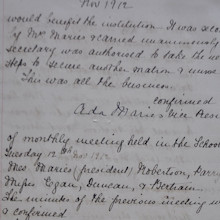 Nov 1912
would benefit the institution. It was seco
by Mrs Maries & carried unanimously
secretary was authorised to take the ne
steps to secure another matron & nurse
This was all the business.
Confirmed
Ada Maries Vice Presi
of monthly meeting held in the School
Tuesday 12th Nov 1912
Mes Maries (President) Robertson, Farr
Misses Egan, Duncan, & Bertram.
The minutes of the previous meeting w
& confirmed